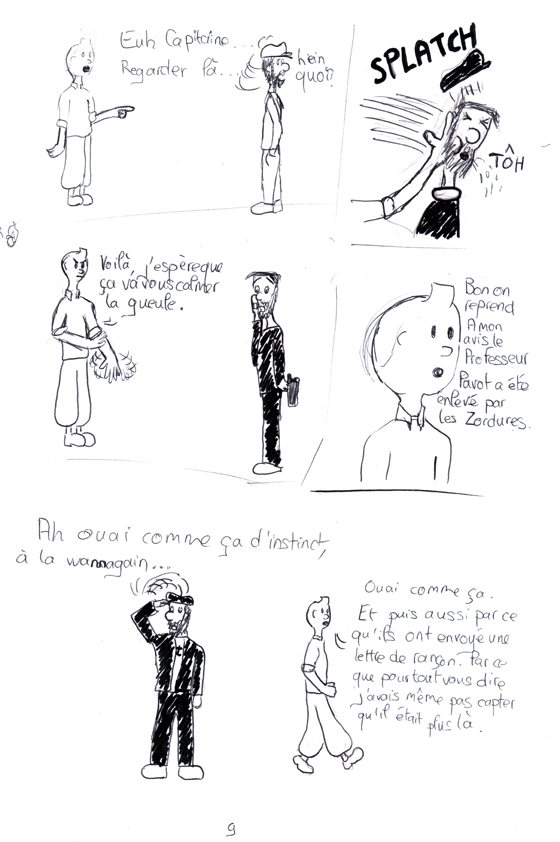 Euh Capitaine...
Regarder là...
hein
quoi?
SPLATCH
TÔH
Voilà, j'espère que
ça va vous calmer
la gueule.
Bon on
reprend
A mon
avis le
Professeur
Pavot a été
enlevé par
les Zordures.
Ah ouai comme ça d'instinct,
à la wannagain...
Ouai comme ça.
Et puis aussi par ce
qu'ils ont envoyé une
lettre de rançon. Par ce
que pour tout vous dire
j'avais même pas capter
qu'il était plus là.
9